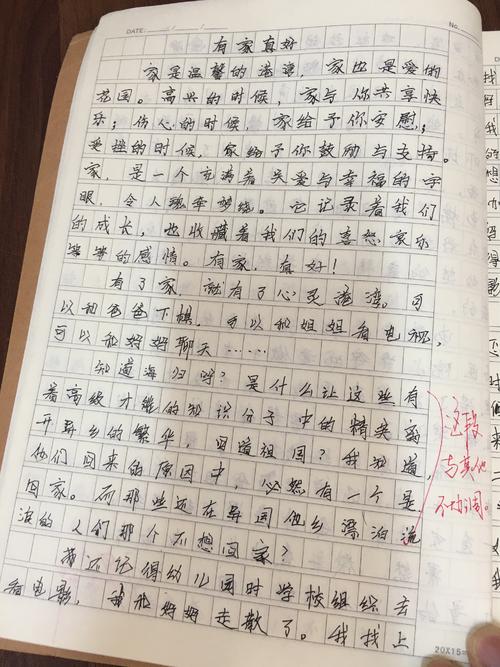 DATE:
No.
有家真好
家是温馨的港湾，家也是爱的
花园。高兴的时候，家与你共享快
乐；伤心的时候，家给予你安慰；
受挫的时候，家给予你鼓励与支持。
家，是一个充满着关爱与幸福的字
眼，令人魂牵梦绕。它记录着我们
的成长，也收藏着我们的喜怒哀乐
等等的感情。有家，真好！
有了家，就有了心灵港湾。可
以和爸爸下棋，可以和姐姐看电视，
可以和妈妈聊天……
知道海归吗？是什么让这些有
着高级才能的知识分子中的精英离
开异乡的繁华，回道祖国？我知道，
他们回来的原因中，必然有一个是
回家。而那些还在异国他乡漂泊流
浪的人们那个不想回家？
我还记得幼儿园时学校组织去
看电影，我和妈妈走散了。我找上
这段
与其他
不协调。
20X15=